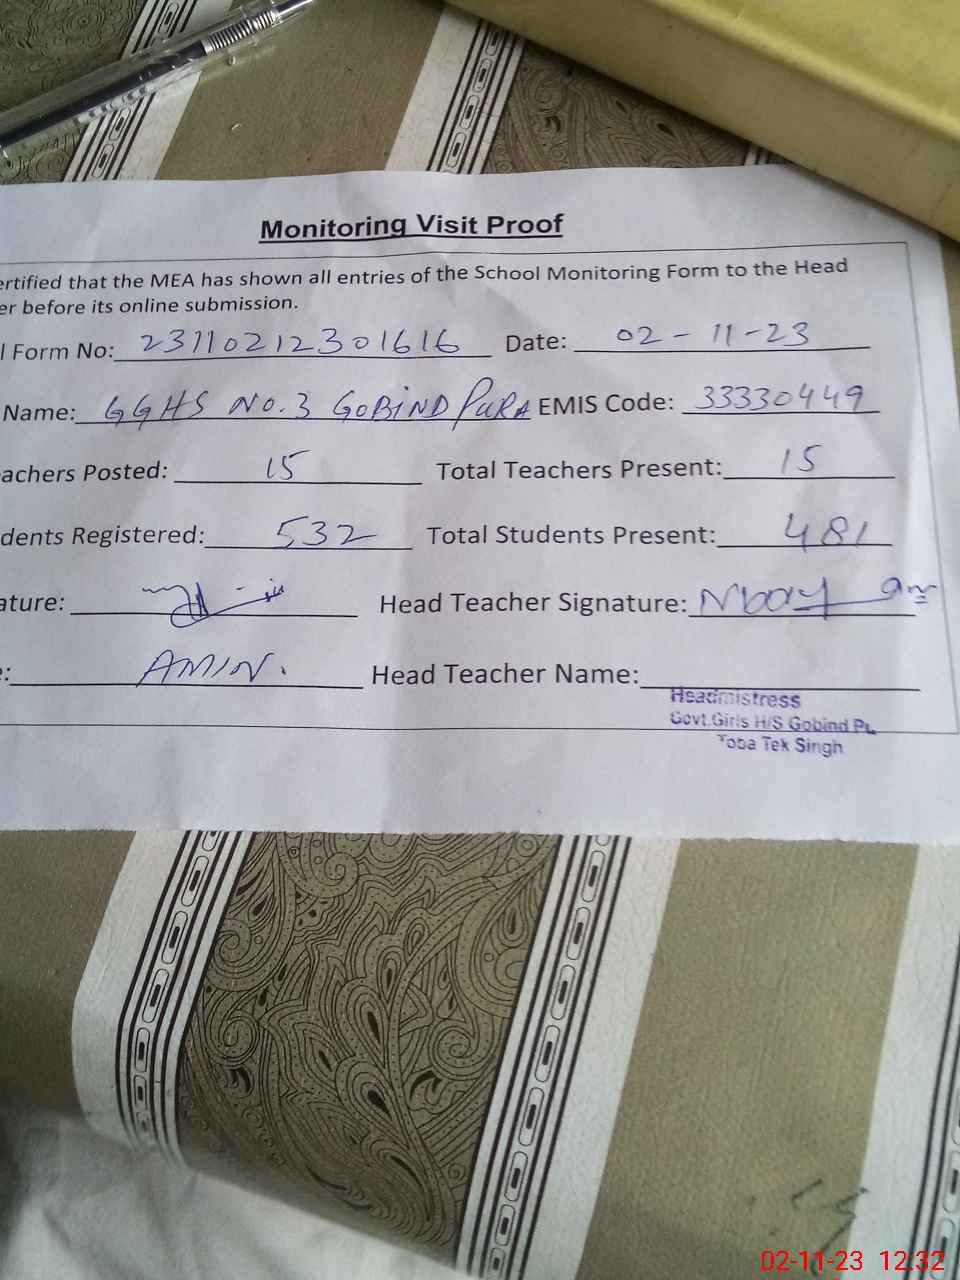 Monitoring Visit Proof
ertified that the MEA has shown all entries of the School Monitoring Form to the Head
er before its online submission.
l Form No: 23110212301616 Date: 02-11-23
Name: GGHS NO.3 GOBIND PURA EMIS Code: 33330449
achers Posted: 15 Total Teachers Present: 15
dents Registered: 532 Total Students Present: 481
ature: Head Teacher Signature:
: AMIN. Head Teacher Name:
Headmistress
Govt.Girls H/S Gobind Pu
Toba Tek Singh
02-11-23 12:32